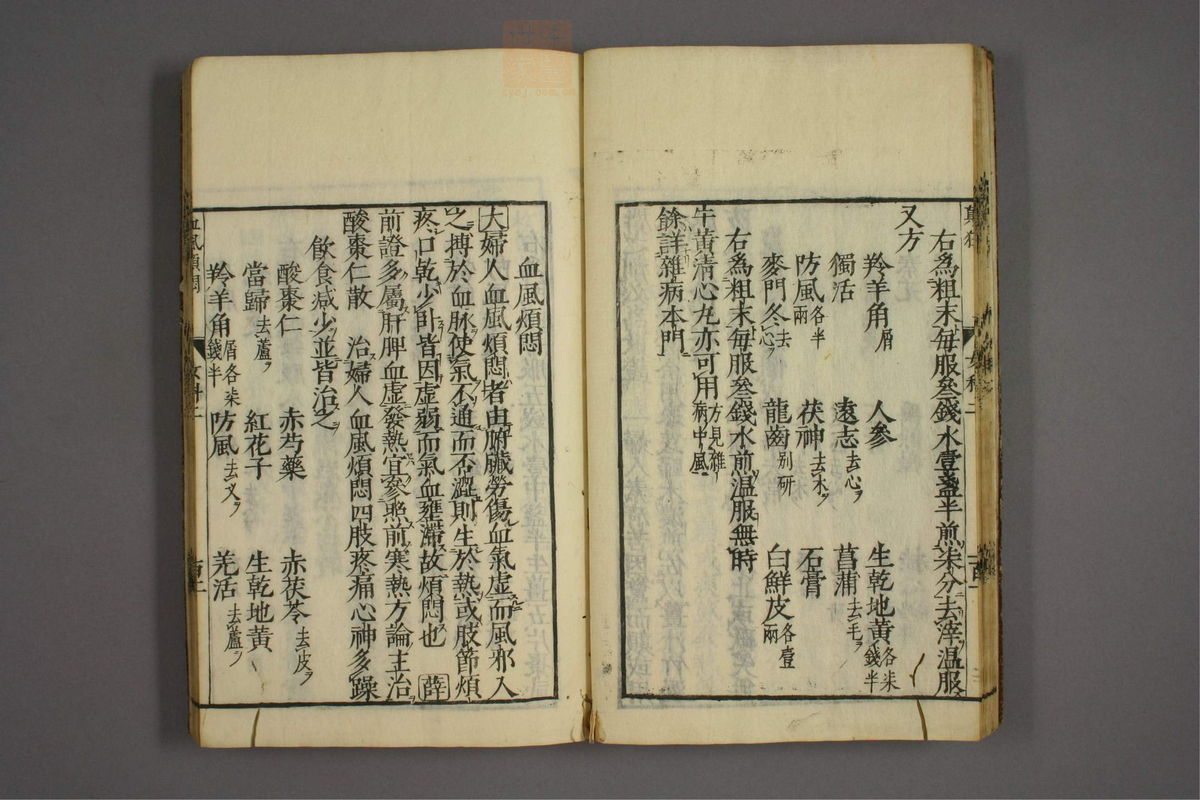 右爲粗末每服叄錢水壹盞半煎柒分去滓溫服
又方
羚羊角屑 人參 生乾地黄各柒錢半
獨活 遠志去心 菖蒲去毛
防風各半兩 茯神去木 石膏
麥門冬去心 龍齒别研 白鮮皮各壹兩
右爲粗末每服叄錢水煎溫服無時
牛黄清心丸亦可用方見雜病中風
餘詳雜病本門
女科二
血風煩悶
大婦人血風煩悶者由腑臟勞傷血氣虛而風邪入
之搏於血脉使氣不通而否澀則生於熱或肢節煩
疼口乾少卧皆因虛弱而氣血壅滯故煩悶也 薛
前證多屬肝脾血虛發熱宜參照前寒熱方論主治
酸棗仁散 治婦人血風煩悶四肢疼痛心神多躁
飲食減少並皆治之
酸棗仁 赤芍藥 赤茯苓去皮
當歸去蘆 紅花子 生乾地黄
羚羊角屑各柒錢半 防風去叉 羌活去蘆
血風煩悶
女科二